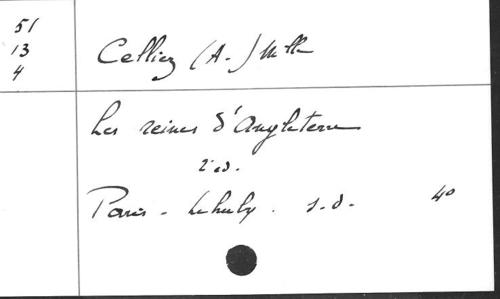 51
13
4
Celliez (A.-) Mlle
Les reines d'Angleterre
2e ed.
Paris - Lehuby. s.d. 4°